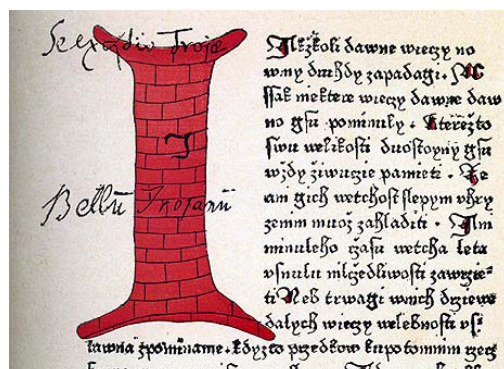 De excidio Troje
Bellū Trojanū
I
Ačžkoli dawne wieczy no
wymy druhdy zapadagi. A
ssak niektere wieczy dawne daw
no gsu pominuly. Kterežto
swu welikosti duostoyny gsu
wždy žiwucze pamieti. Ze
am gich wetchost slepym vhry
zenim muož zahladiti.
minuleho času wetcha leta
vsnulu mlčedliwosti zawrzie-
ti Neb trwagi wnich drziewe
dalych wieczy welebnosti vs
tawna zpominanie. Kdyžto przedkow kupotomnim rzecz